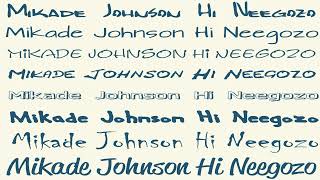 Mikade Johnson Hi Neegozo
Mikade Johnson Hi Neegozo
MiKADE JOHNSON Hi NEEGOZO
Mikade Johnson Hi Neegozo
Mikade Johnson Hi Neegozo
Mikade Johnson Hi Neegozo
Mikade Johnson Hi Neegozo
Mikade Johnson Hi Neegozo